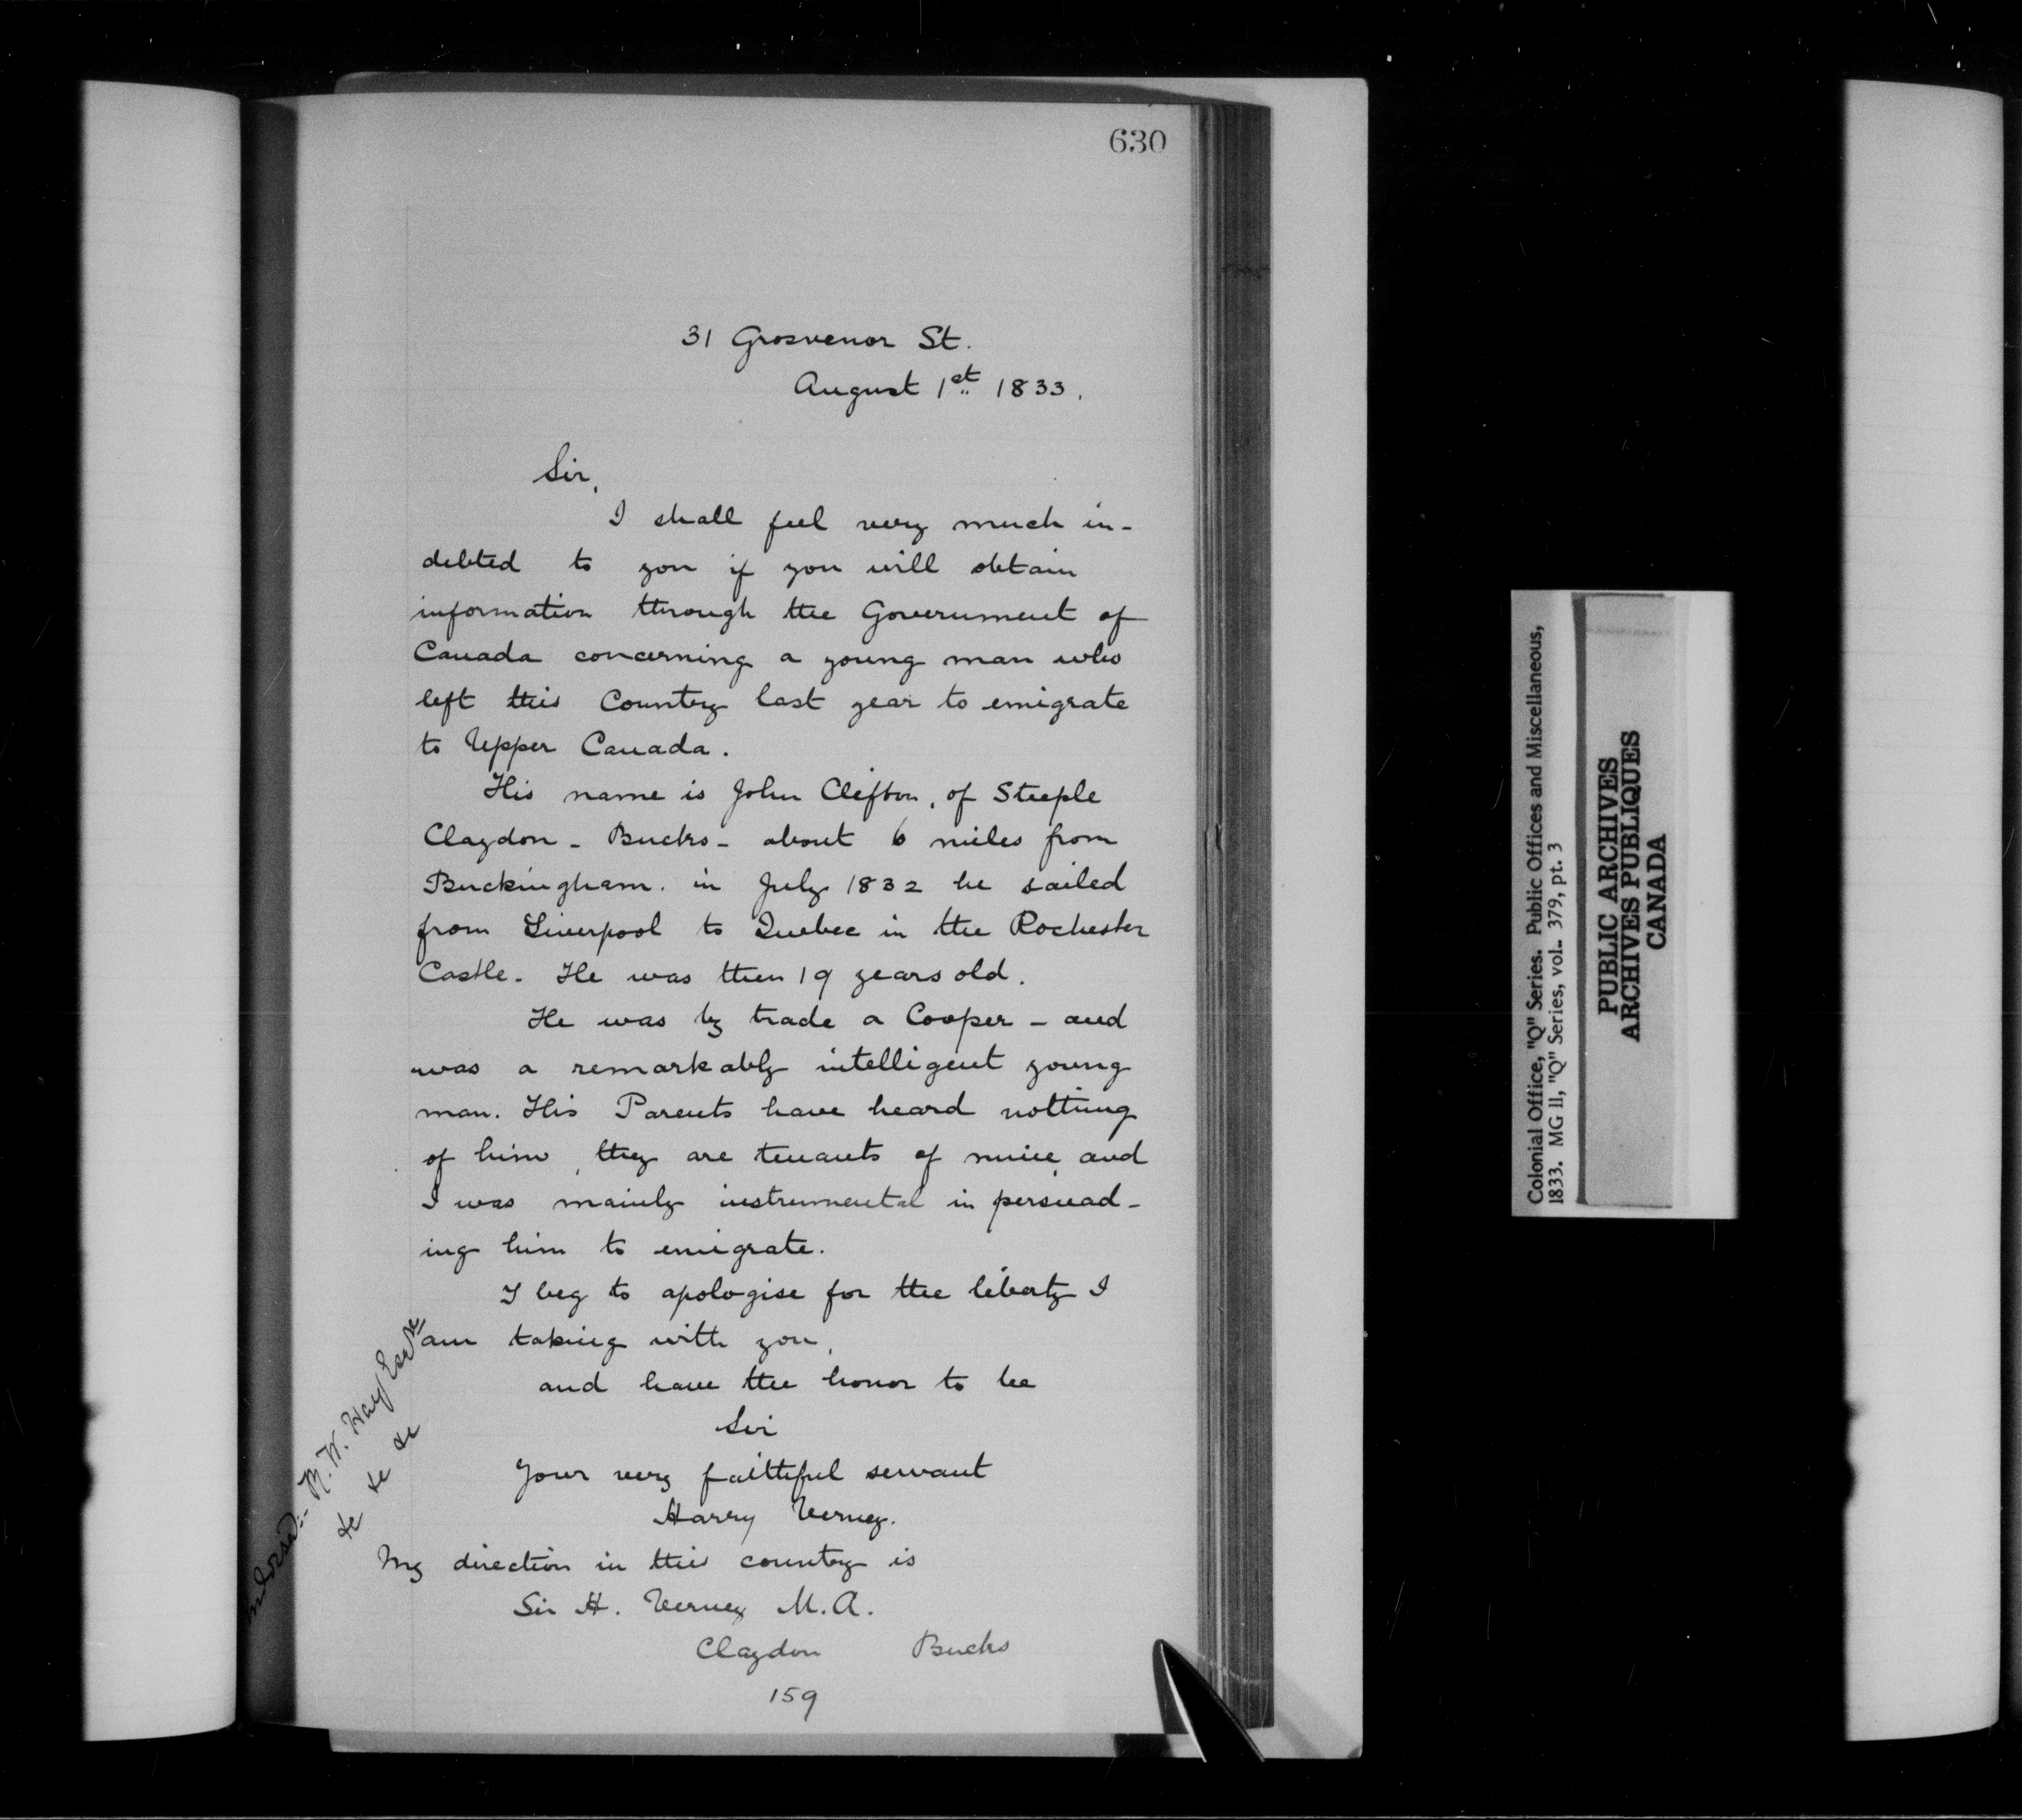 630
31 Grosvenor St.
August 1st 1833.
Sir,
I shall feel very much in-
debted to you if you will obtain
information through the Government of
Canada concerning a young man who
left this Country last year to emigrate
to Upper Canada.
His name is John Clifton, of Steeple
Claydon - Bucks - about 6 miles from
Buckingham. in July 1832 he sailed
from Liverpool to Quebec in the Rochester
Castle. He was then 19 years old.
He was by trade a Cooper - and
was a remarkably intelligent young
man. His Parents have heard nothing
of him, they are tenants of mine, and
I was mainly instrumental in persuad-
ing him to emigrate.
I beg to apologise for the liberty I
am taking with you,
and have the honor to be
Sir
Your very faithful servant
Harry Verney.
My direction in this country is
Sir H. Verney M.A.
Claydon Bucks
159
ndorsed:- R. W. Hay Esqre
&c &c &c
Colonial Office, "Q" Series. Public Offices and Miscellaneous,
1833. MG 11, "Q" Series, vol. 379, pt. 3
PUBLIC ARCHIVES
ARCHIVES PUBLIQUES
CANADA